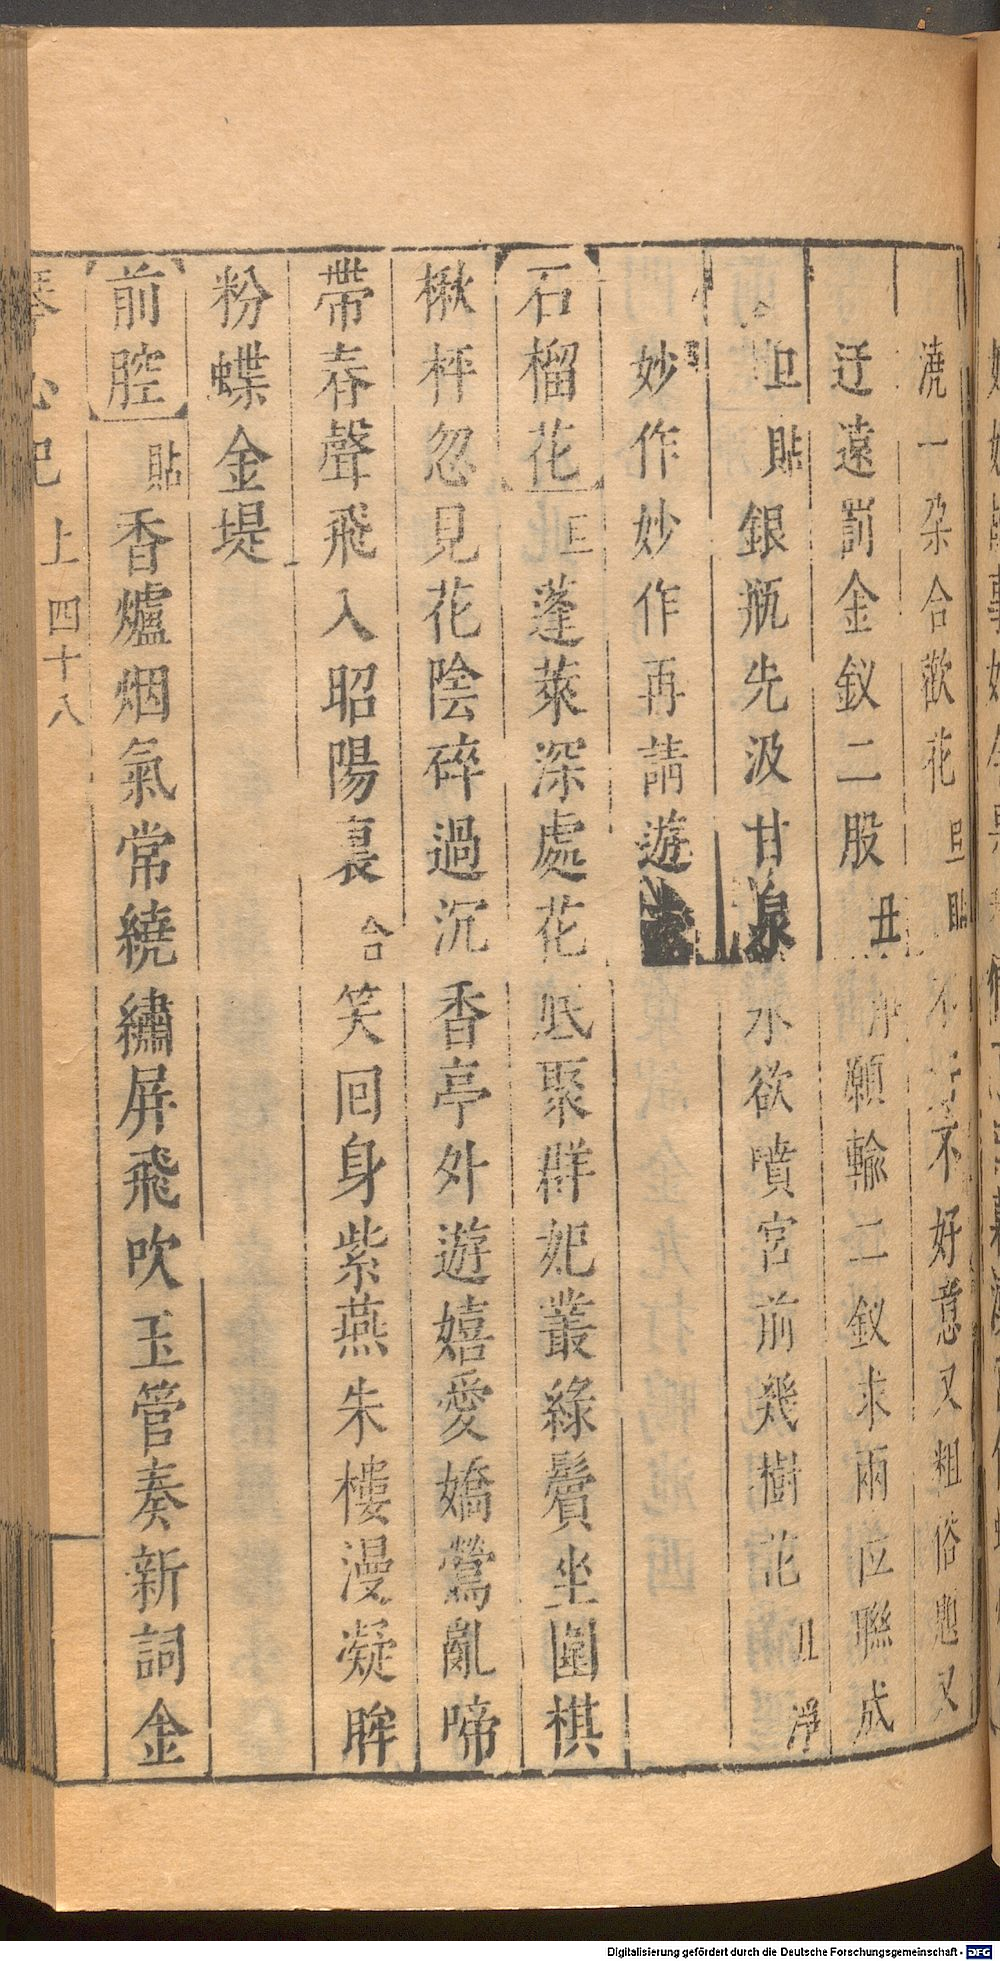 澆一朶合歡花旦貼不不好意又粗俗又
迂遠罰金釵二股丑淨願輸二釵求兩位聯成
旦貼銀瓶先汲甘泉水欲噴宮前幾樹花丑淨
妙作妙作再請遊
石榴花旦蓬萊深處花底聚群妃叢綠鬢坐圍棋
楸枰忽見花陰碎過沉香亭外遊嬉愛嬌鶯亂啼
帶春聲飛入昭陽裏合笑回身紫燕朱樓漫凝眸
粉蝶金堤
前腔貼香爐烟氣常繞繡屏飛吹玉管奏新詞金
琴心記 上 四十八
Digitalisierung gefördert durch die Deutsche Forschungsgemeinschaft - DFG